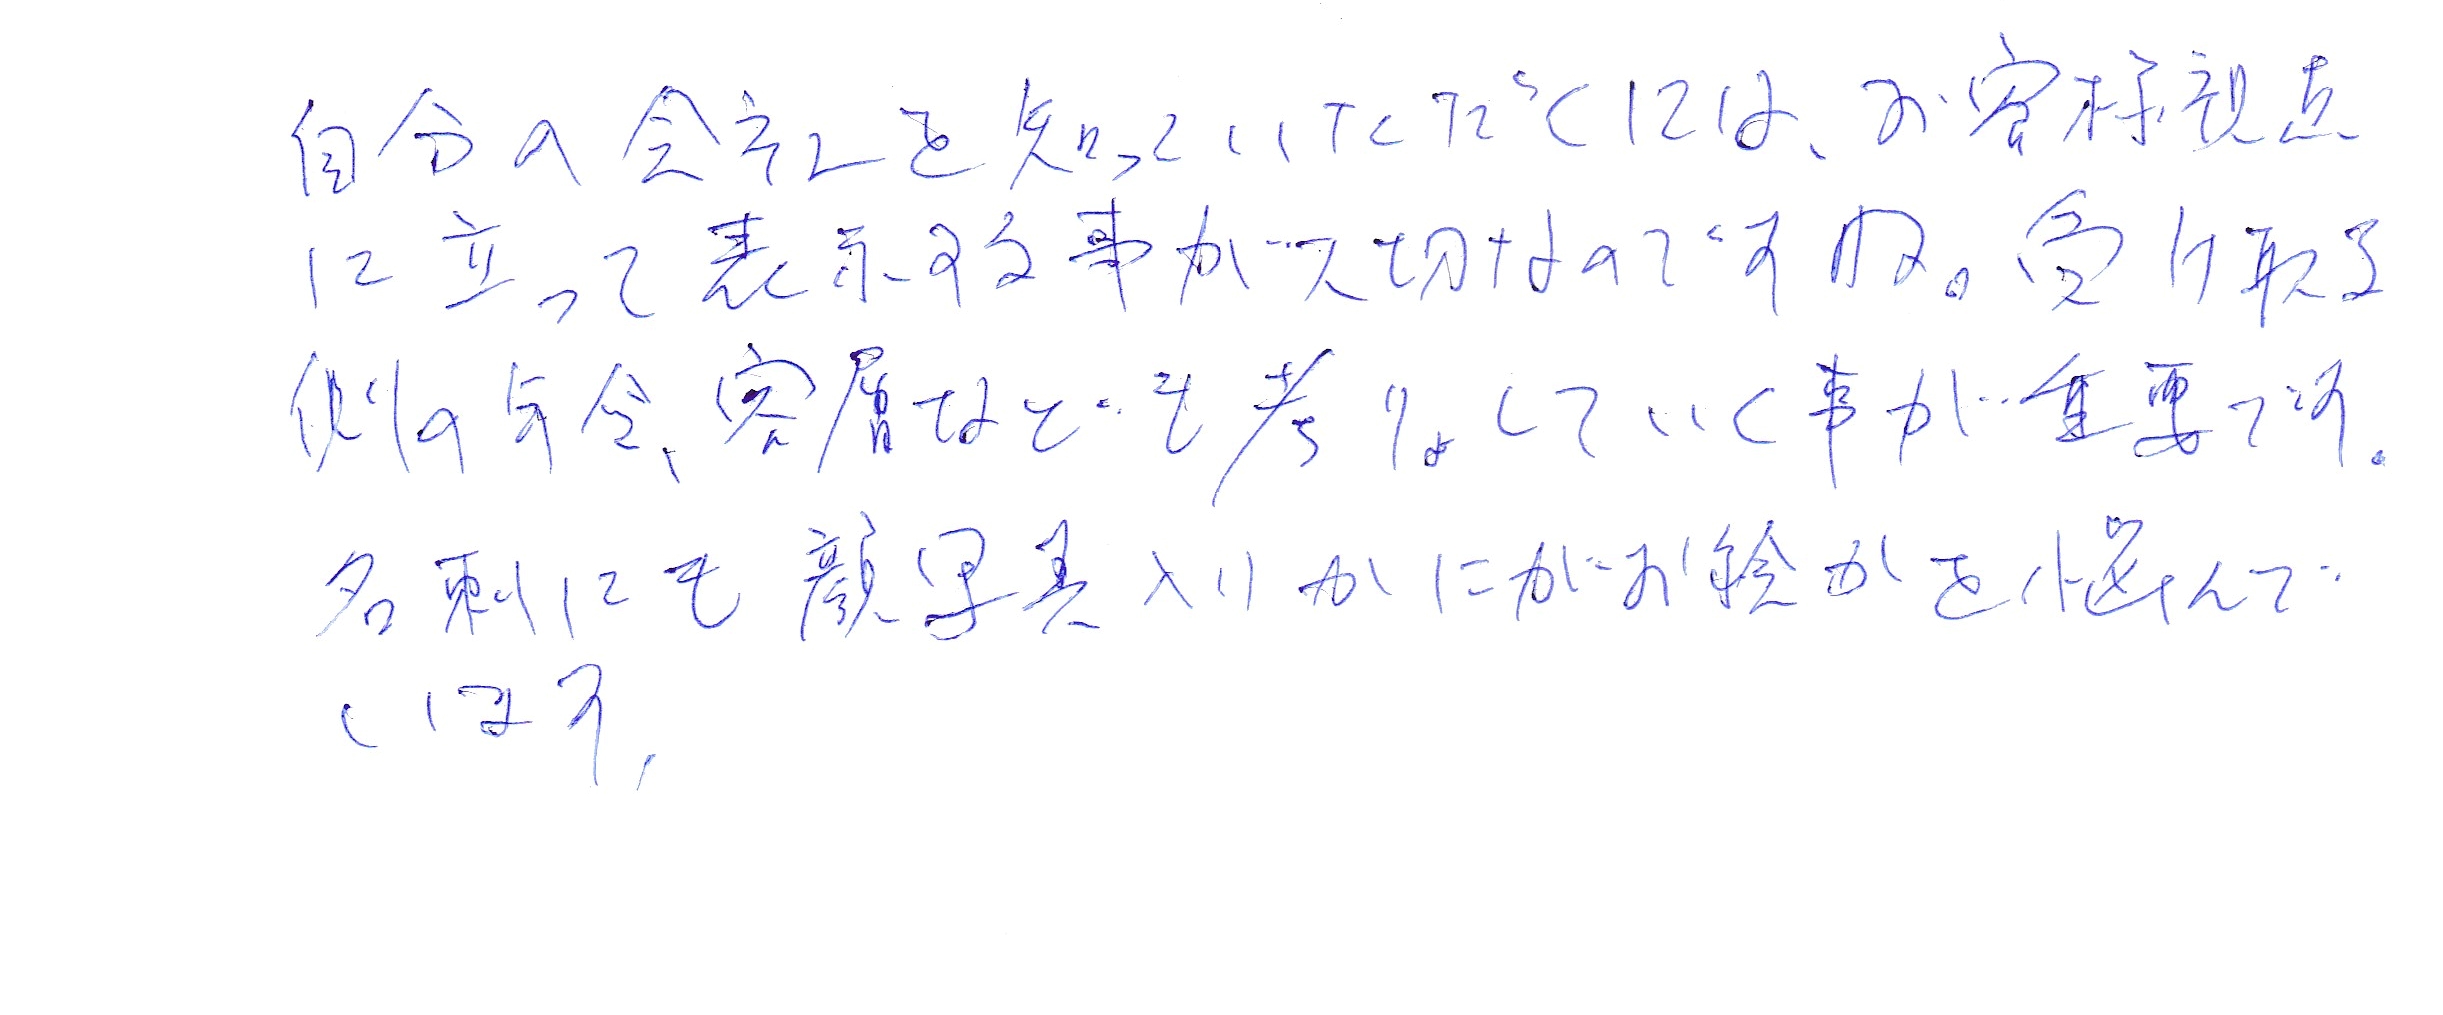 自分の会社を知っていただくには、お客様視点
に立って表示する事が大切なのですね。受け取る
側の年令、客層なども考りょしていく事が重要です。
名刺にも顔写真入りかにがお絵かを悩んで
います。